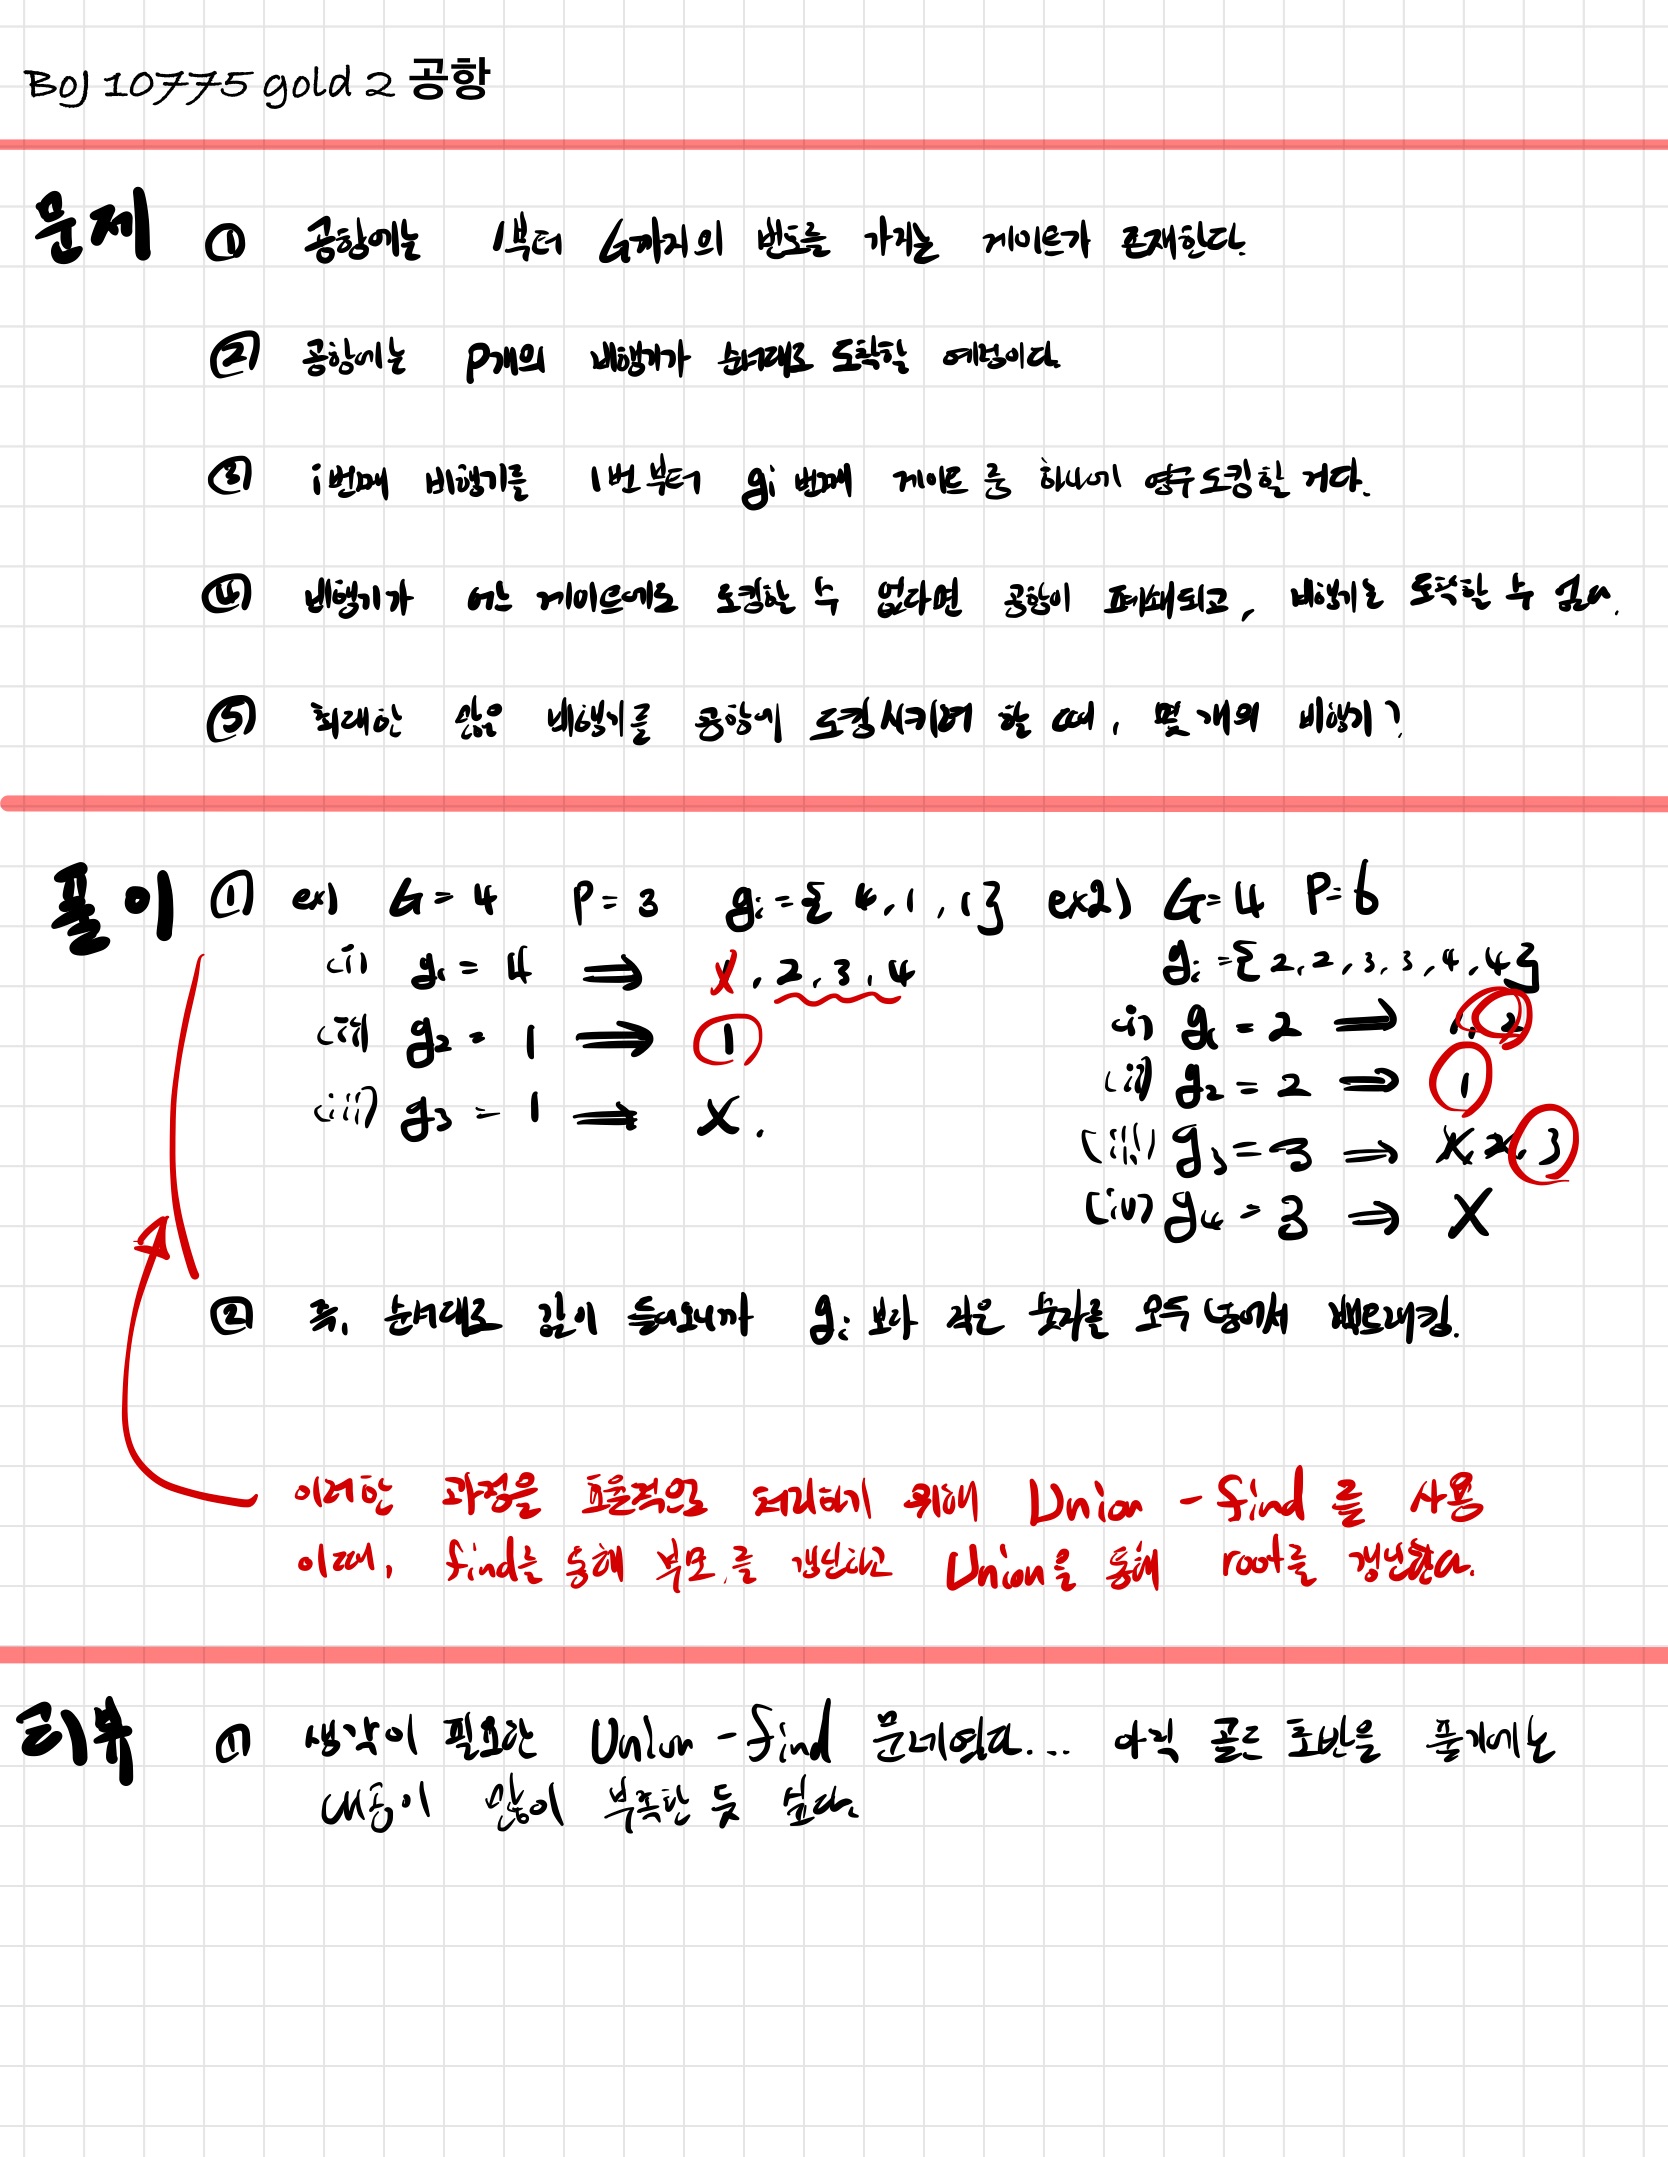 BOJ 10775 gold 2 공항
문제 ① 공항에는 1부터 G까지의 번호를 가지는 게이트가 존재한다.
② 공항에는 P개의 비행기가 순서대로 도착할 예정이다.
③ i번째 비행기를 1번부터 gi 번째 게이트 중 하나에 영구도킹할 거다.
④ 비행기가 어느 게이트에도 도킹할 수 없다면 공항이 폐쇄되고, 비행기는 도착할 수 없다.
⑤ 최대한 많은 비행기를 공항에 도킹시키려 할 때, 몇 개의 비행기?
풀이 ① ex) G = 4 P = 3 gi = { 4, 1, 1 }
(i) g1 = 4 ⇒ 1, 2, 3, 4
(ii) g2 = 1 ⇒ 1
(iii) g3 = 1 ⇒ X.
ex2) G=4 P=6
gi = { 2, 2, 3, 3, 4, 4 }
(i) g1 = 2 ⇒ 1, 2
(ii) g2 = 2 ⇒ 1
(iii) g3 = 3 ⇒ X, 2, 3
(iv) g4 = 3 ⇒ X
② 즉, 순서대로 값이 들어오니까 gi 보다 작은 숫자를 모두 넣어서 백트래킹.
이러한 과정을 효율적으로 처리하기 위해 Union - find 를 사용
이때, find를 통해 부모를 갱신하고 Union을 통해 root를 갱신한다.
리뷰 ① 생각이 필요한 Union - find 문제였다.... 아직 골드 초반을 풀기에는
내공이 많이 부족한 듯 싶다.